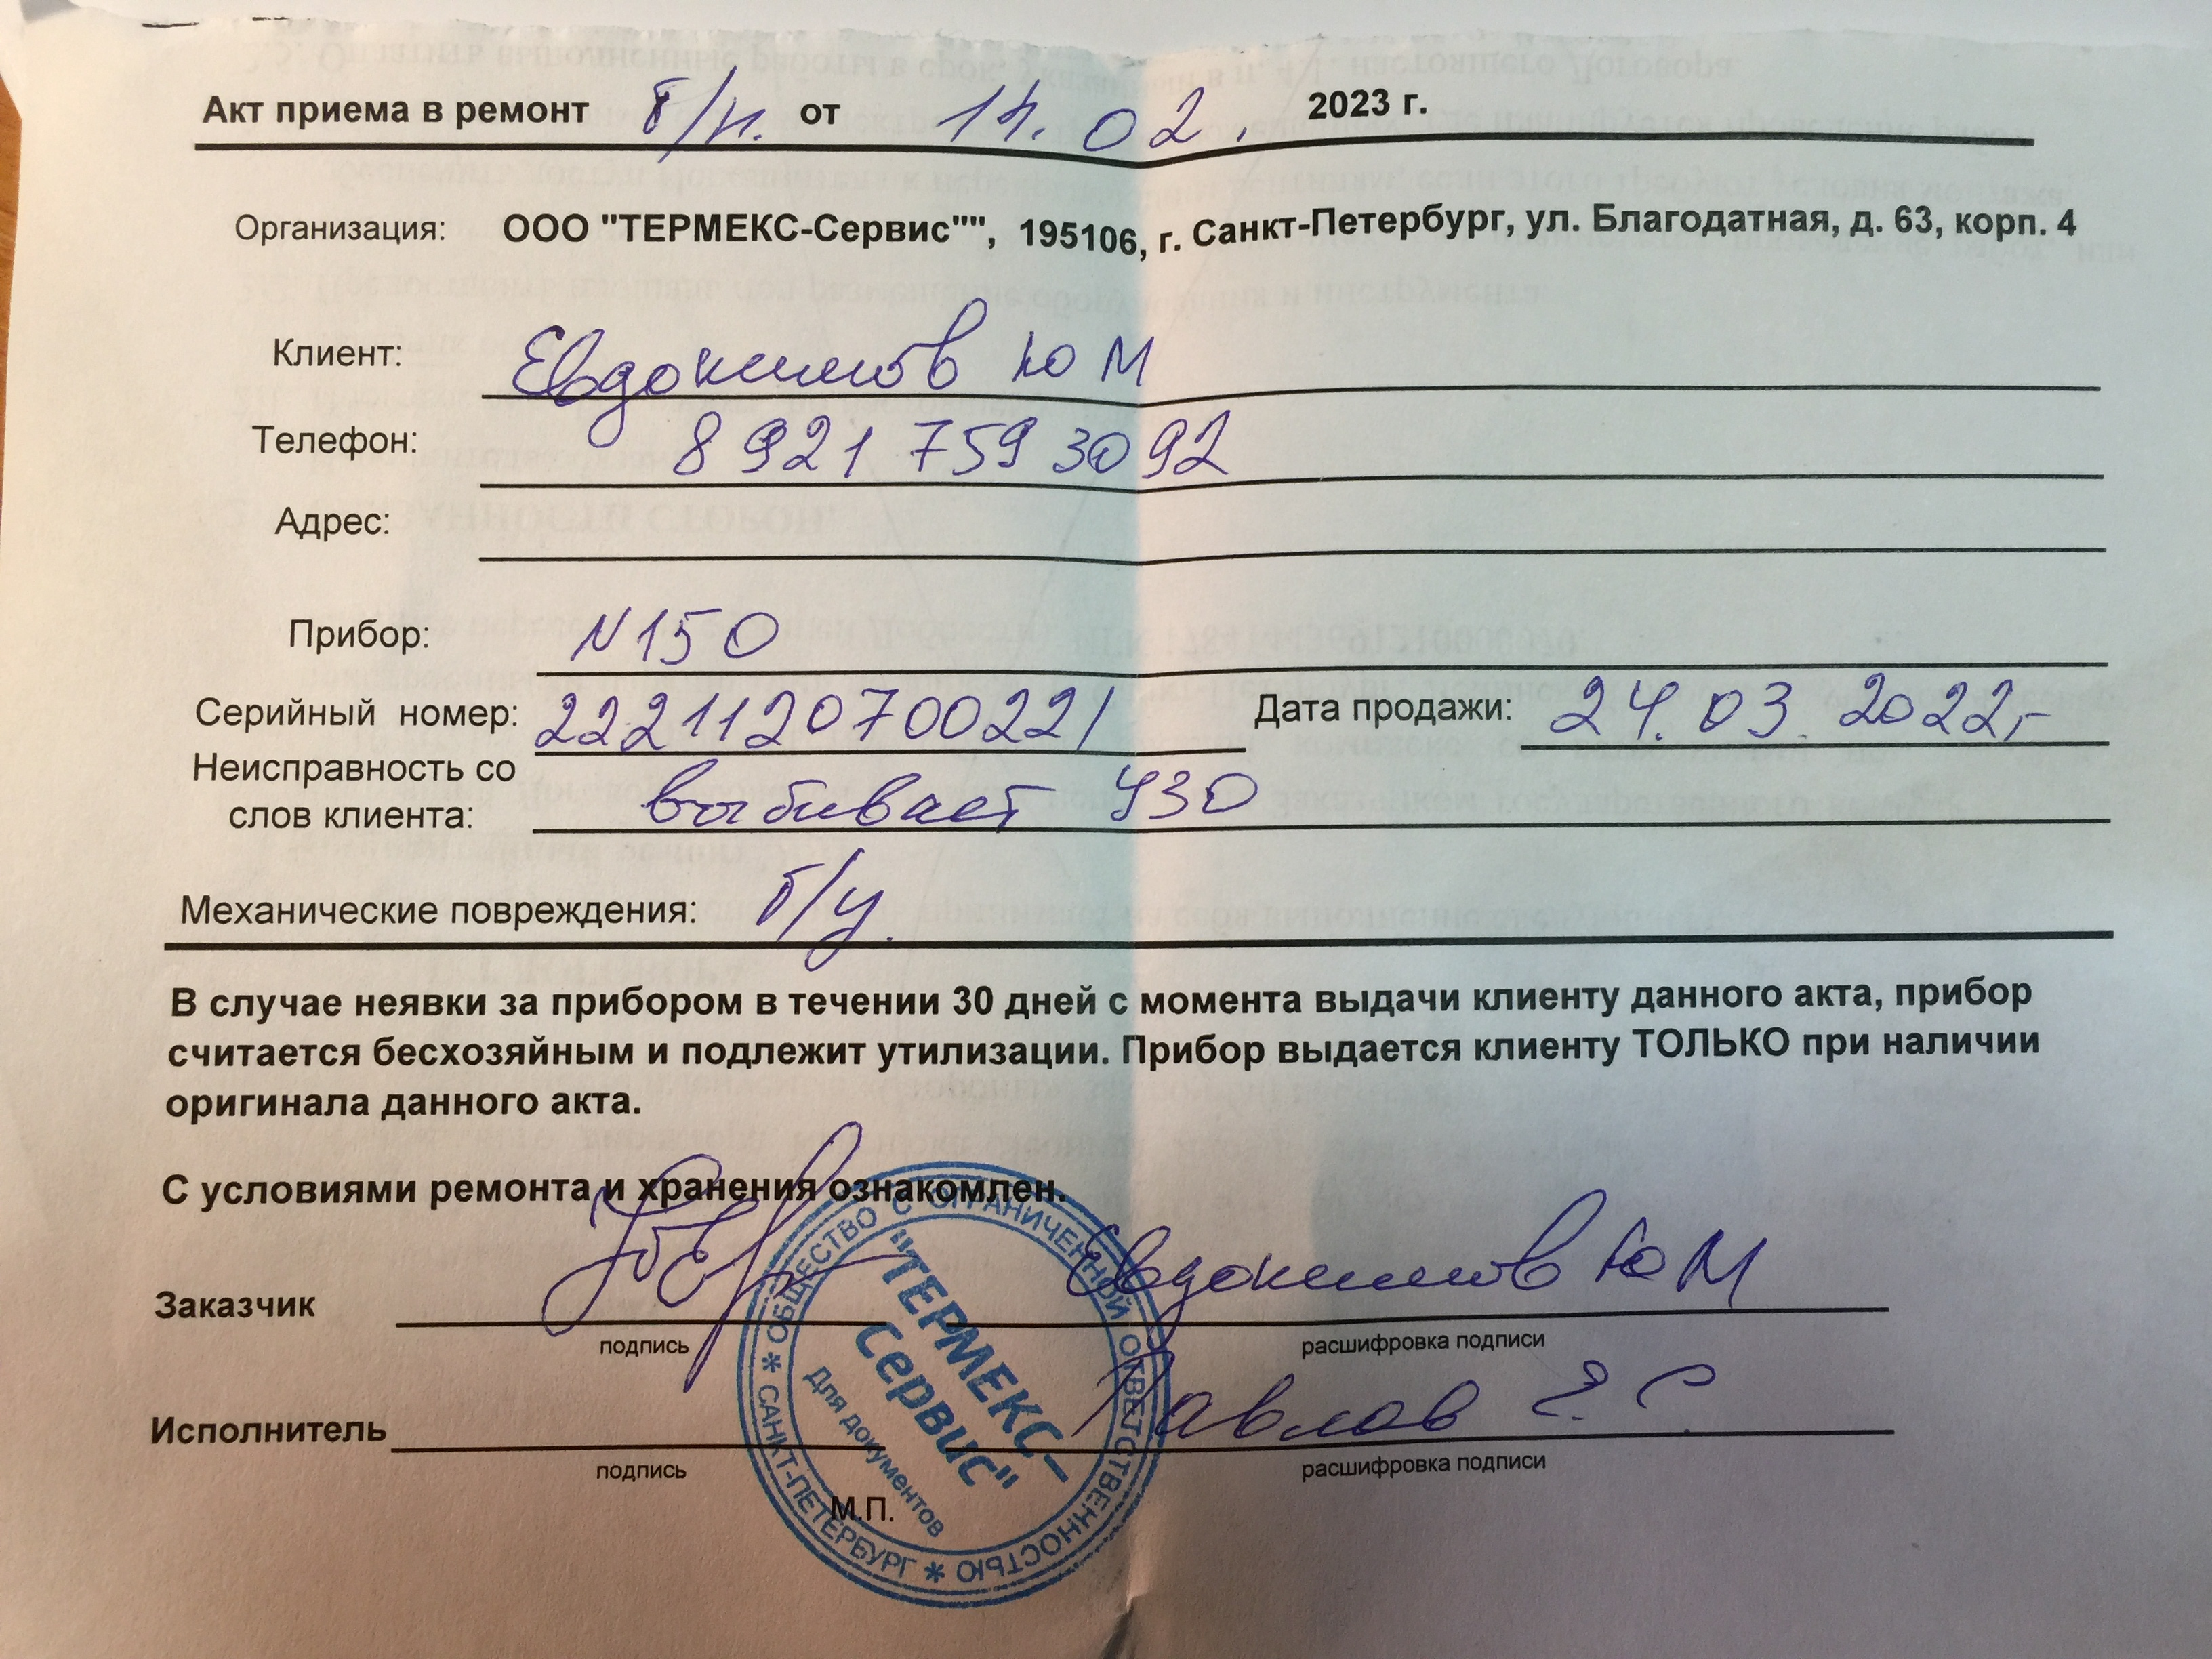 Акт приема в ремонт б/н. от 11.02. 2023 г.
Организация: ООО "ТЕРМЕКС-Сервис"", 195106, г. Санкт-Петербург, ул. Благодатная, д. 63, корп. 4
Клиент: Евдокимов Ю М
Телефон: 8 921 759 30 92
Адрес:
Прибор: N150
Серийный номер: 2221120700221 Дата продажи: 24.03.2022г
Неисправность со
слов клиента: выбивает УЗО
Механические повреждения: б/у.
В случае неявки за прибором в течении 30 дней с момента выдачи клиенту данного акта, прибор
считается бесхозяйным и подлежит утилизации. Прибор выдается клиенту ТОЛЬКО при наличии
оригинала данного акта.
С условиями ремонта и хранения ознакомлен.
Заказчик Евдокимов Ю М
подпись расшифровка подписи
Исполнитель
подпись М.П. расшифровка подписи
ОБЩЕСТВО С ОГРАНИЧЕННОЙ ОТВЕТСТВЕННОСТЬЮ * САНКТ-ПЕТЕРБУРГ *
"ТЕРМЕКС
Сервис"
Для документов